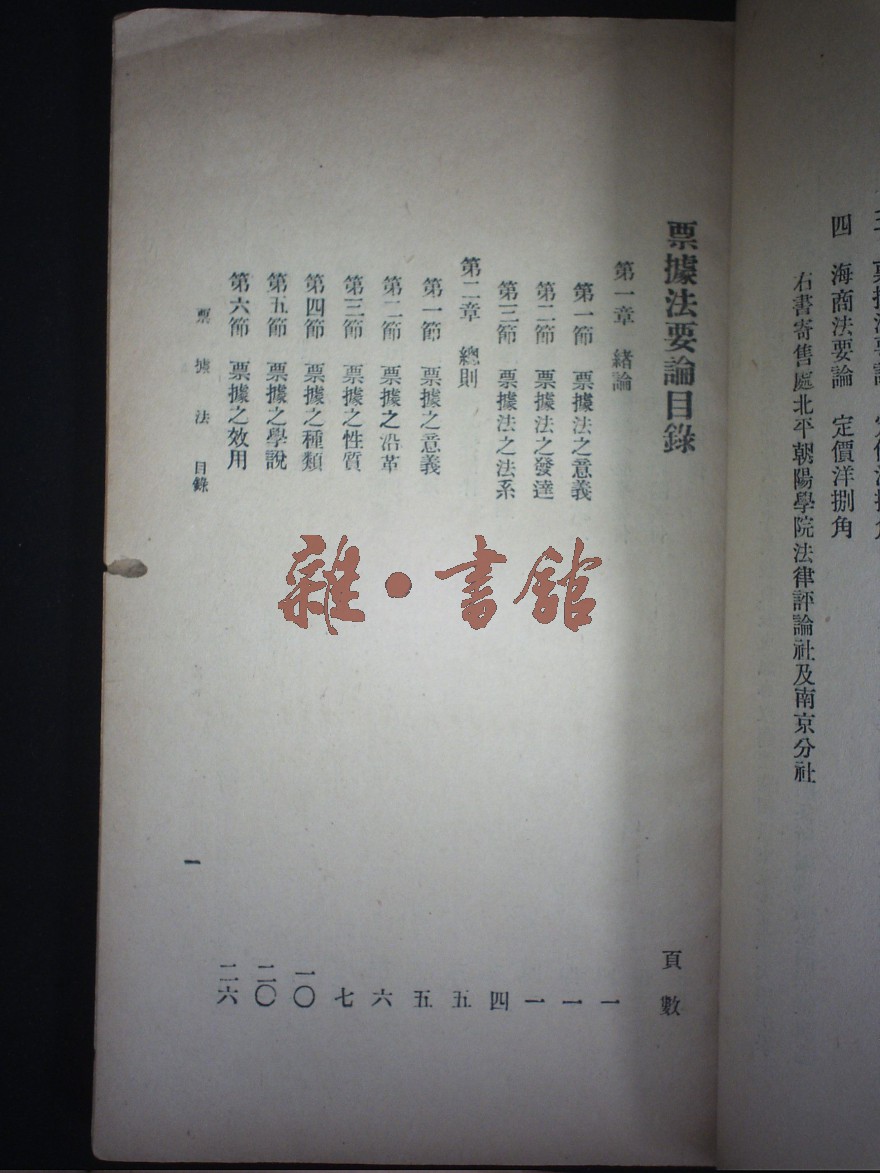 四　海商法要論　定價洋捌角
右書寄售處北平朝陽學院法律評論社及南京分社
票據法要論目錄　頁數
第一章　緒論　一
第一節　票據法之意義　一
第二節　票據法之發達　一
第三節　票據法之法系　四
第二章　總則　五
第一節　票據之意義　五
第二節　票據之沿革　六
第三節　票據之性質　七
第四節　票據之種類　一〇
第五節　票據之學說　二〇
第六節　票據之效用　二六
票據法　目錄　一
雜·書館